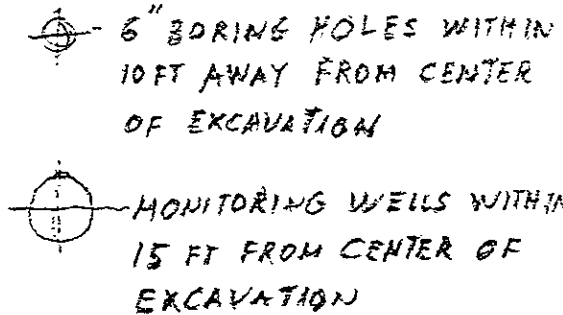 6" BORING HOLES WITHIN
10 FT AWAY FROM CENTER
OF EXCAVATION
MONITORING WELLS WITHIN
15 FT FROM CENTER OF
EXCAVATION